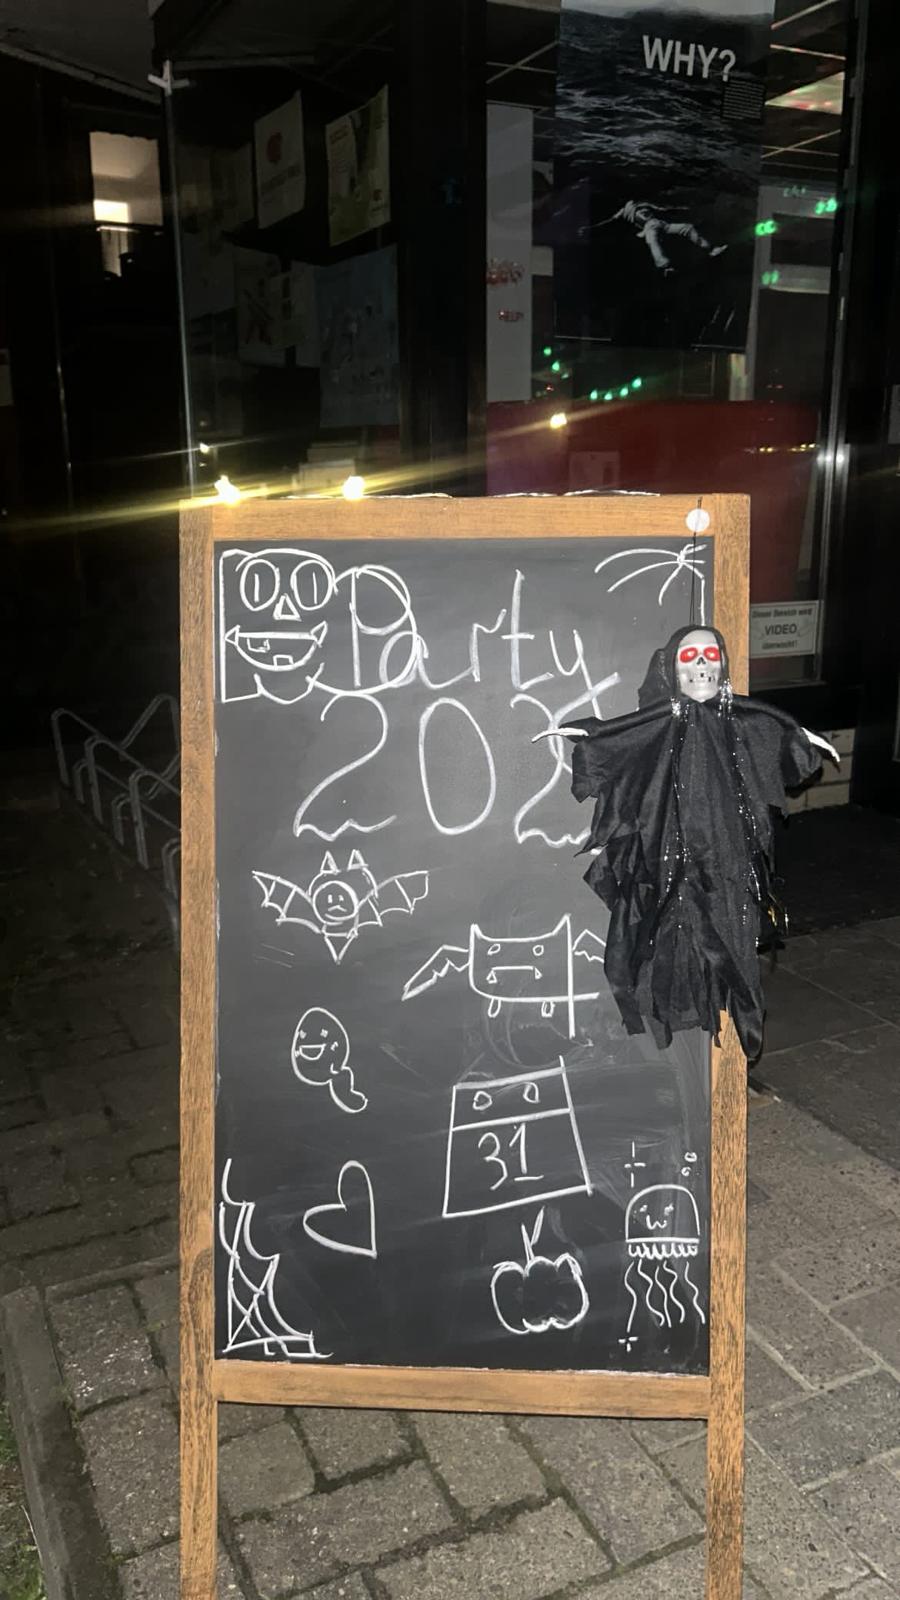 WHY?
HELP!
Dieser Bereich wird
VIDEO
überwacht!
Party
202
31